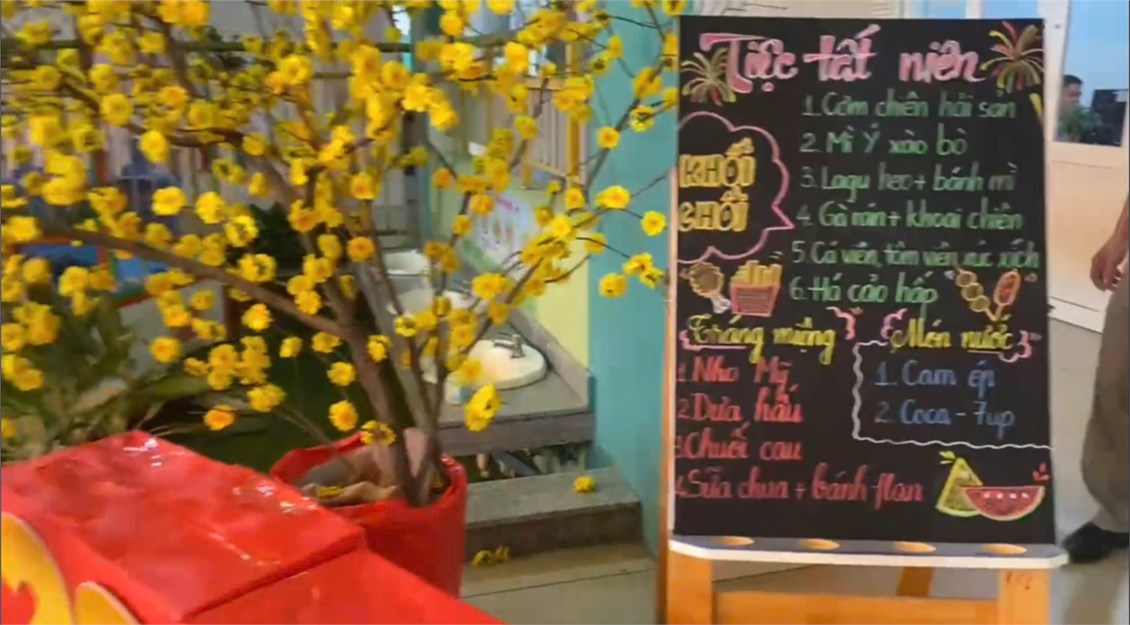 Tiệc tất niên
KHỐI
CHỒI
1. Cơm chiên hải sản
2. Mì Ý xào bò
3. Lagu heo + bánh mì
4. Gà rán + khoai chiên
5. Cá viên, tôm viên, xúc xích
6. Há cảo hấp
Tráng miệng
1. Nho Mỹ
2. Dưa hấu
3. Chuối cau
4. Sữa chua + bánh flan
Món nước
1. Cam ép
2. Coca - 7up